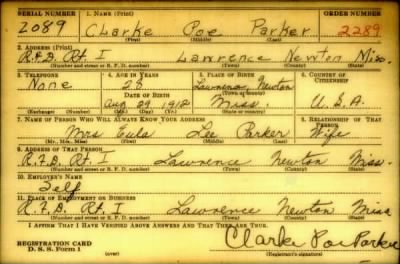 SERIAL NUMBER 1. NAME (Print) ORDER NUMBER
2089 Clarke Poe Parker 2289
(First) (Middle) (Last)
2. ADDRESS (Print)
R.F.D. Rt. I Lawrence Newton Miss.
(Number and street or R. F. D. number) (Town) (County) (State)
3. TELEPHONE 4. AGE IN YEARS 5. PLACE OF BIRTH 6. COUNTRY OF CITIZENSHIP
None 28 Lawrence Newton
DATE OF BIRTH (Town or county)
Aug 29 1912 Miss. U.S.A.
(Exchange) (Number) (Mo.) (Day) (Yr.) (State or country)
7. NAME OF PERSON WHO WILL ALWAYS KNOW YOUR ADDRESS 8. RELATIONSHIP OF THAT PERSON
Mrs Eula Lee Parker Wife
(Mr., Mrs., Miss) (First) (Middle) (Last)
9. ADDRESS OF THAT PERSON
R.F.D. Rt. I Lawrence Newton Miss.
(Number and street or R. F. D. number) (Town) (County) (State)
10. EMPLOYER'S NAME
Self
11. PLACE OF EMPLOYMENT OR BUSINESS
R.F.D. Rt. I Lawrence Newton Miss
(Number and street or R. F. D. number) (Town) (County) (State)
I AFFIRM THAT I HAVE VERIFIED ABOVE ANSWERS AND THAT THEY ARE TRUE.
REGISTRATION CARD Clarke Poe Parker
D. S. S. Form 1 (over) (Registrant's signature)